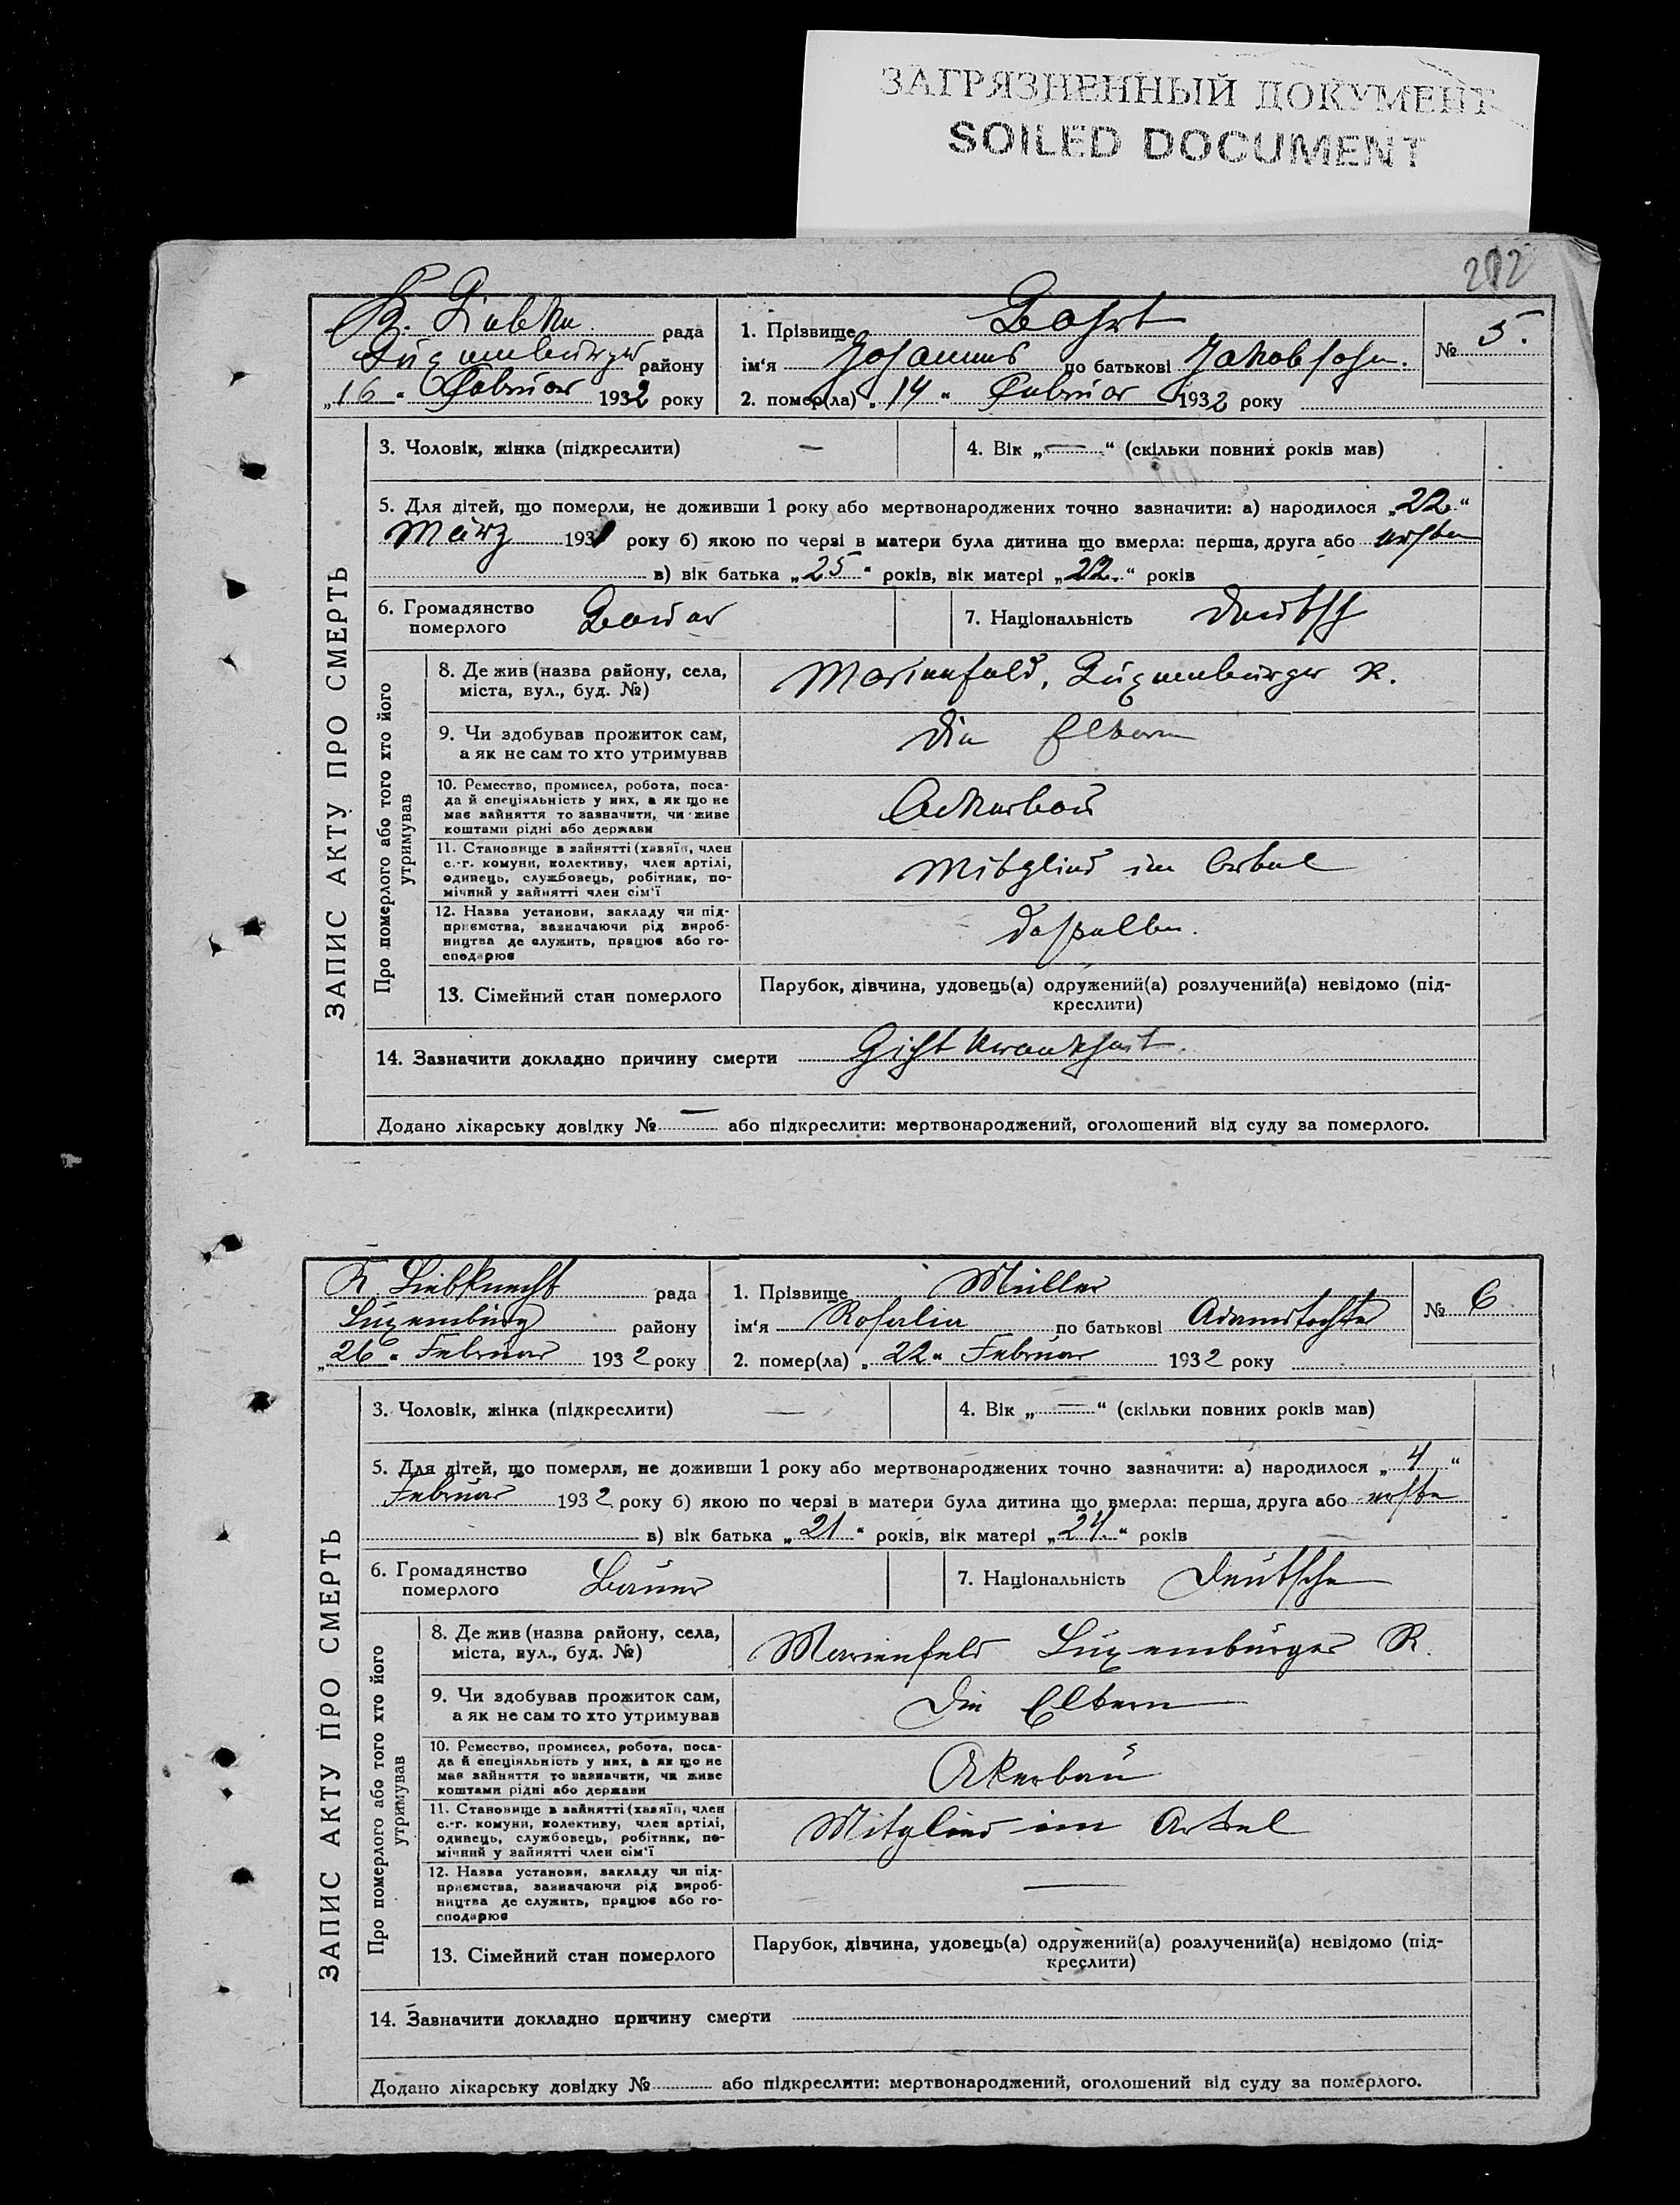 ЗАГРЯЗНЕННЫЙ ДОКУМЕНТ
SOILED DOCUMENT
202
рада
1. Прізвище
№ 5.
Luxemburger району
ім‘я Johannes по батькові Jakobsohn.
„16“ Februar 1932 року
2. помер(ла) „14“ Februar 1932 року
ЗАПИС АКТУ ПРО СМЕРТЬ
3. Чоловік, жінка (підкреслити) —
4. Вік „—“ (скільки повних років мав)
5. Для дітей, що померли, не доживши 1 року або мертвонароджених точно зазначити: а) народилося „22.“
März 1931 року б) якою по черзі в матери була дитина що вмерла: перша, друга або ersten
в) вік батька „25“ років, вік матері „22.“ років
6. Громадянство
померлого Bauer
7. Національність Deutsch
Про померлого або того хто його
утримував
8. Де жив (назва району, села,
міста, вул., буд. №)
Marienfeld, Luxemburger R.
9. Чи здобував прожиток сам,
а як не сам то хто утримував
die Eltern
10. Ремество, промисел, робота, поса-
да й спеціяльність у них, а як що не
має зайняття то зазначити, чи живе
коштами рідні або держави
Ackerbau
11. Становище в зайнятті (хазяїн, член
с.-г. комуни, колективу, член артілі,
одинець, службовець, робітник, по-
мічний у зайнятті член сім‘ї
Mitglied im Artel
12. Назва установи, закладу чи під-
приємства, зазначаючи рід вироб-
ництва де служить, працює або го-
сподарює
dasselbe.
13. Сімейний стан померлого
Парубок, дівчина, удовець(а) одружений(а) розлучений(а) невідомо (під-
креслити)
14. Зазначити докладно причину смерти Gicht Krankheit.
Додано лікарську довідку № — або підкреслити: мертвонароджений, оголошений від суду за померлого.
K. Liebknecht рада
1. Прізвище Müller
№ 6
Luxemburg району
ім‘я Rosalia по батькові Adamstochter
„26“ Februar 1932 року
2. помер(ла) „22“ Februar 1932 року
ЗАПИС АКТУ ПРО СМЕРТЬ
3. Чоловік, жінка (підкреслити) —
4. Вік „—“ (скільки повних років мав)
5. Для дітей, що померли, не доживши 1 року або мертвонароджених точно зазначити: а) народилося „4“
Februar 1932 року б) якою по черзі в матери була дитина що вмерла: перша, друга або erste
в) вік батька „21“ років, вік матері „24.“ років
6. Громадянство
померлого Bauer
7. Національність Deutsche
Про померлого або того хто його
утримував
8. Де жив (назва району, села,
міста, вул., буд. №)
Marienfeld Luxemburger R.
9. Чи здобував прожиток сам,
а як не сам то хто утримував
Die Eltern
10. Ремество, промисел, робота, поса-
да й спеціяльність у них, а як що не
має зайняття то зазначити, чи живе
коштами рідні або держави
Akerbau
11. Становище в зайнятті (хазяїн, член
с.-г. комуни, колективу, член артілі,
одинець, службовець, робітник, по-
мічний у зайнятті член сім‘ї
Mitglied im Artel
12. Назва установи, закладу чи під-
приємства, зазначаючи рід вироб-
ництва де служить, працює або го-
сподарює
—
13. Сімейний стан померлого
Парубок, дівчина, удовець(а) одружений(а) розлучений(а) невідомо (під-
креслити)
14. Зазначити докладно причину смерти
Додано лікарську довідку № або підкреслити: мертвонароджений, оголошений від суду за померлого.